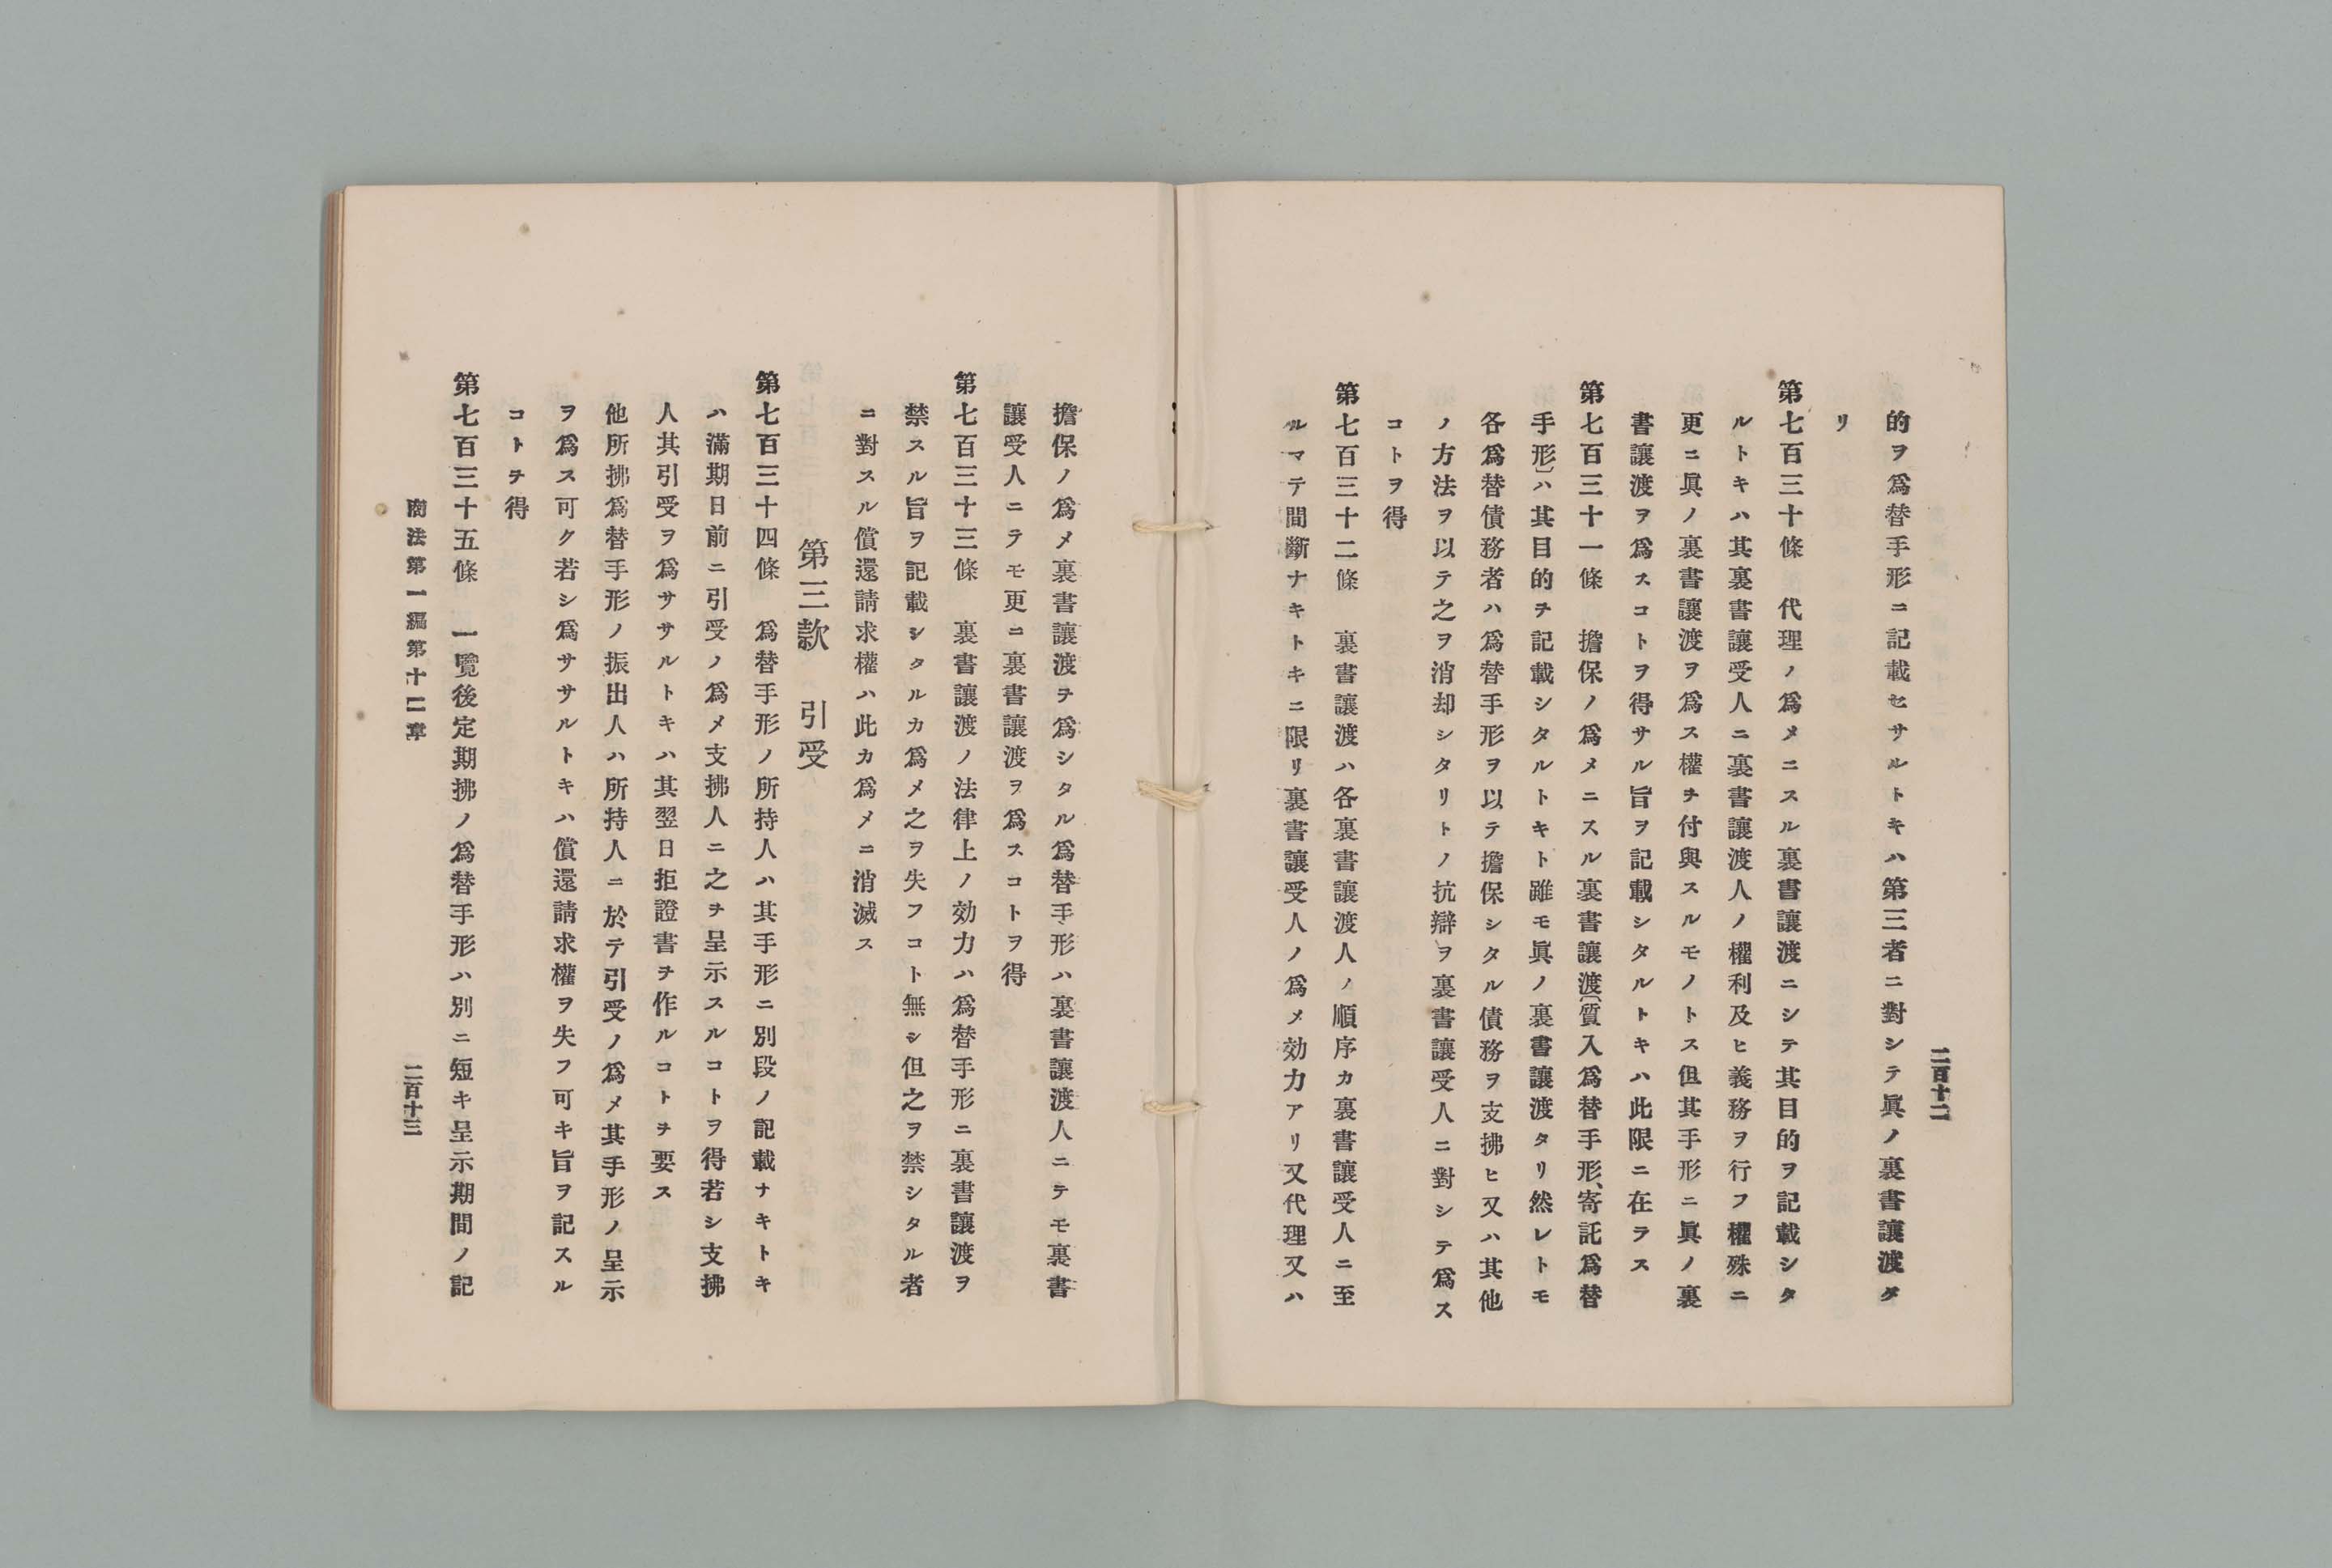 二百十二
的ヲ爲替手形ニ記載セサルトキハ第三者ニ對シテ眞ノ裏書讓渡タ
リ
第七百三十條　代理ノ爲メニスル裏書讓渡ニシテ其目的ヲ記載シタ
ルトキハ其裏書讓受人ニ裏書讓渡人ノ權利及ヒ義務ヲ行フ權殊ニ
更ニ眞ノ裏書讓渡ヲ爲ス權ヲ付與スルモノトス但其手形ニ眞ノ裏
書讓渡ヲ爲スコトヲ得サル旨ヲ記載シタルトキハ此限ニ在ラス
第七百三十一條　擔保ノ爲メニスル裏書讓渡〔質入爲替手形、寄託爲替
手形〕ハ其目的ヲ記載シタルトキト雖モ眞ノ裏書讓渡タリ然レトモ
各爲替債務者ハ爲替手形ヲ以テ擔保シタル債務ヲ支拂ヒ又ハ其他
ノ方法ヲ以テ之ヲ消却シタリトノ抗辯ヲ裏書讓受人ニ對シテ爲ス
コトヲ得
第七百三十二條　裏書讓渡ハ各裏書讓渡人ノ順序カ裏書讓受人ニ至
ルマテ間斷ナキトキニ限リ裏書讓受人ノ爲メ効力アリ又代理又ハ
擔保ノ爲メ裏書讓渡ヲ爲シタル爲替手形ハ裏書讓渡人ニテモ裏書
讓受人ニテモ更ニ裏書讓渡ヲ爲スコトヲ得
第七百三十三條　裏書讓渡ノ法律上ノ効力ハ爲替手形ニ裏書讓渡ヲ
禁スル旨ヲ記載シタルカ爲メ之ヲ失フコト無シ但之ヲ禁シタル者
ニ對スル償還請求權ハ此カ爲メニ消滅ス
第三款　引受
第七百三十四條　爲替手形ノ所持人ハ其手形ニ別段ノ記載ナキトキ
ハ滿期日前ニ引受ノ爲メ支拂人ニ之ヲ呈示スルコトヲ得若シ支拂
人其引受ヲ爲サヽルトキハ其翌日拒證書ヲ作ルコトヲ要ス
他所拂爲替手形ノ振出人ハ所持人ニ於テ引受ノ爲メ其手形ノ呈示
ヲ爲ス可ク若シ爲サヽルトキハ償還請求權ヲ失フ可キ旨ヲ記スル
コトヲ得
第七百三十五條　一覽後定期拂ノ爲替手形ハ別ニ短キ呈示期間ノ記
商法第一編第十二章
二百十三